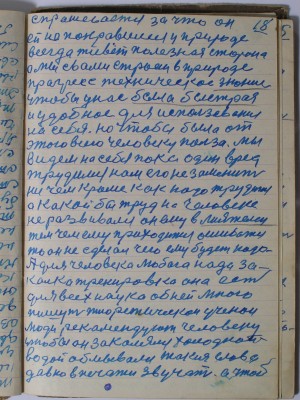 спрашевасти за что он 68
ет не понравился у природе
всегда живёт полезная сторона
а мы свами строим в природе
прогресс техническое знание
чтобы у нас была быстрая
и удобное для использования
на себя. но чтобы была от
этого всего человеку польза. мы
видем на себя пока один вред
труд ему нам его не заменить
ни чем краше как надо трудом
а какой бы труд на человеке
не развивали он ему в
тем чем ему приходится ошивать
то он не сделал чего ему будет надо
А для человека любова нада за-
калка тренировка она ест
для всех наука об ней много
пишут теоретическое ученои
люди рекомендуют человеку
чтобы он закалялся холодной
водой обливали такия слова
давно впечати звучат. а чтоб